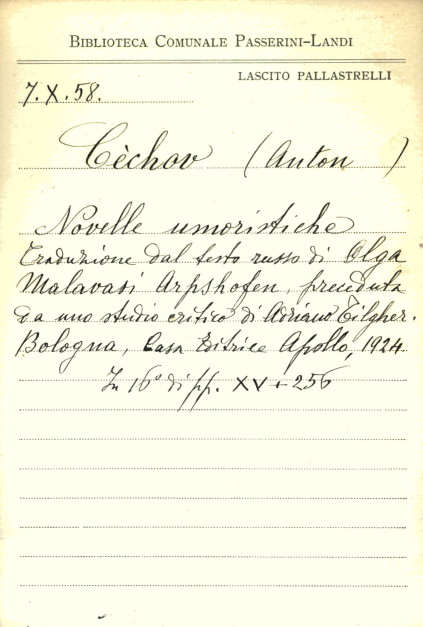 BIBLIOTECA COMUNALE PASSERINI-LANDI
LASCITO PALLASTRELLI
7.X.58.
Cèchov (Anton)
Novelle umoristiche
Traduzione dal testo russo di Olga
Malavasi Arpshofen, preceduta
da uno studio critico di Adriano Tilgher.
Bologna, Casa Editrice Apollo, 1924
In 16° di pp. XV+256